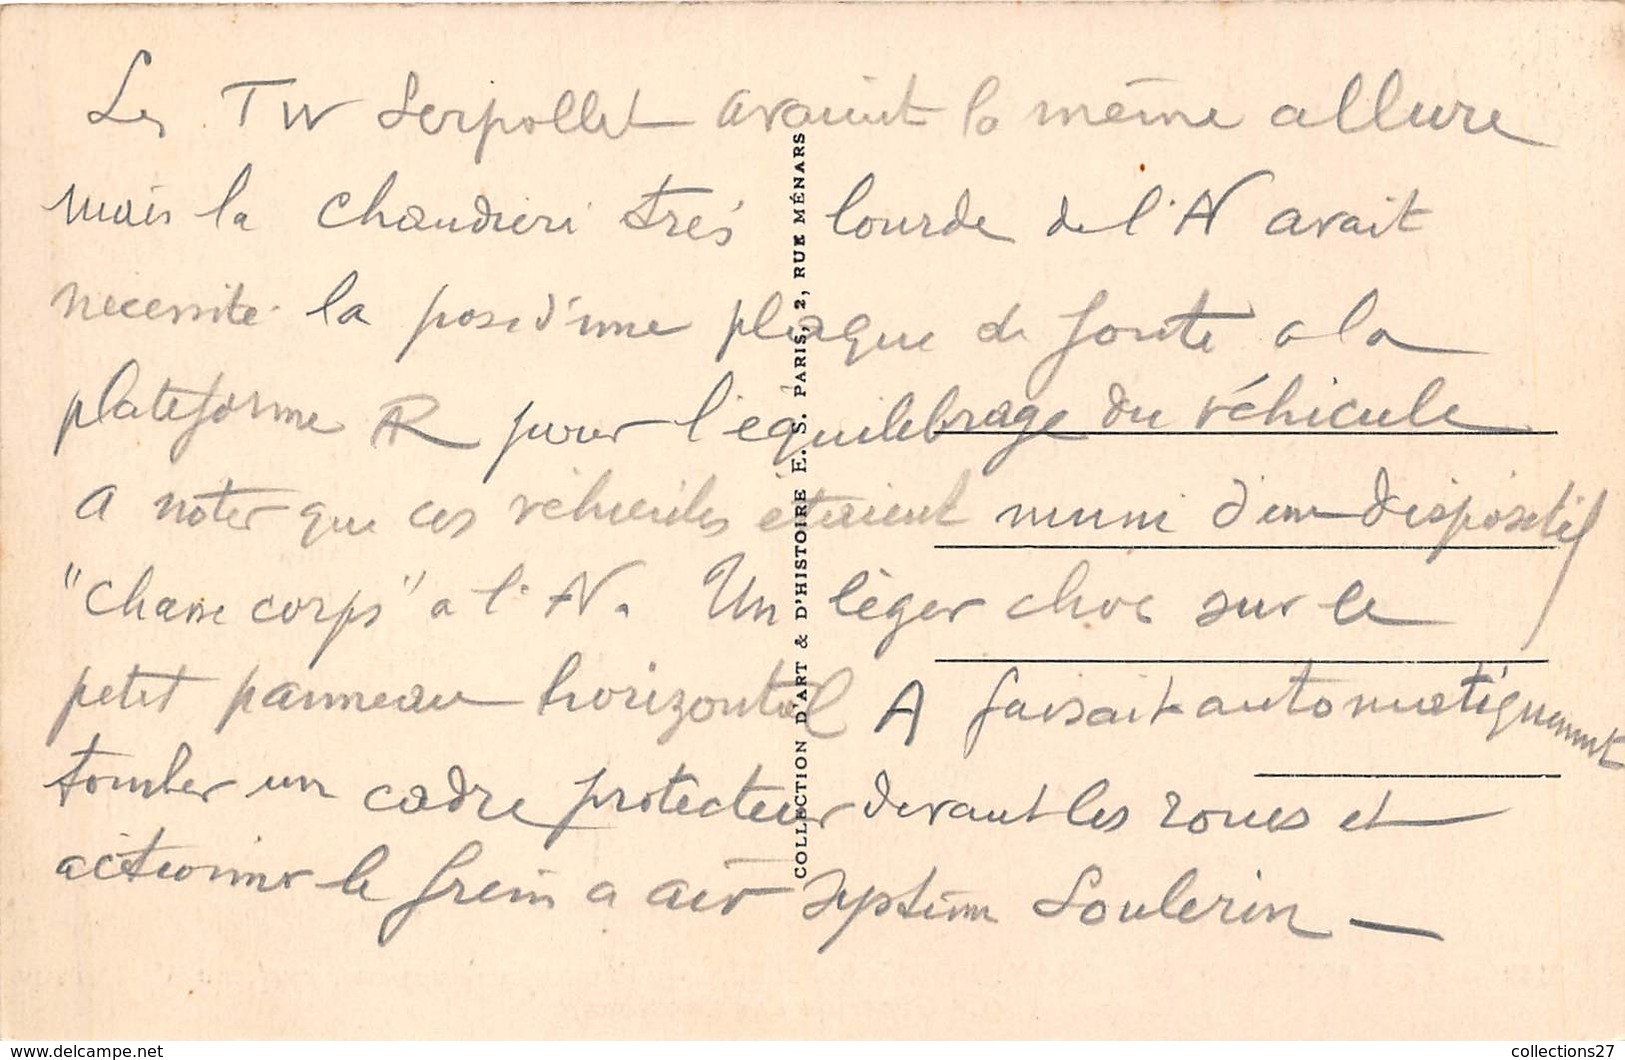 Les TW Serpollet avaient la même allure
mais la chaudiere très lourde de l'AV avait
necessité la pose d'une plaque de fonte a la
plateforme AR pour l'équilibrage du véhicule
A noter que ces véhicules étaient muni d'un dispositif
"chasse corps" a l'AV. Un léger choc sur le
petit panneau horizontal A faisait automatiquement
tomber un cadre protecteur devant les roues et
actionner le frein a air système Soulerin —
COLLECTION D'ART & D'HISTOIRE E. S. PARIS, 2, RUE MÉNARS
www.delcampe.net
collections27